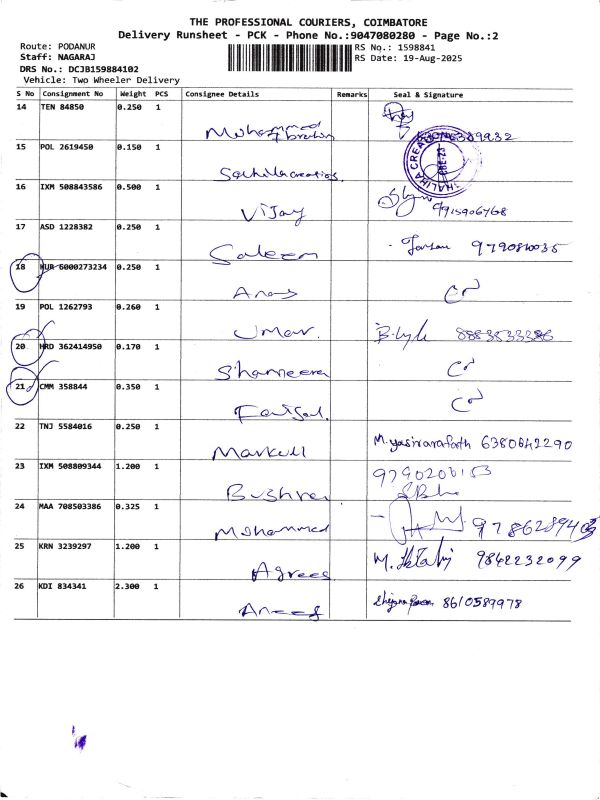 THE PROFESSIONAL COURIERS, COIMBATORE
Delivery Runsheet - PCK - Phone No.:9047080280 - Page No.:2
Route: PODANUR
RS No.: 1598841
Staff: NAGARAJ
RS Date: 19-Aug-2025
DRS No.: DCJB159884102
Vehicle: Two Wheeler Delivery
S No Consignment No Weight PCS Consignee Details Remarks Seal & Signature
14 TEN 84850 0.250 1 Mohammed Ibrahim
15 POL 2619450 0.150 1 Sachilla creations.
16 IXM 508843586 0.500 1 Vijay 9915906768
17 ASD 1228382 0.250 1 Saleem
18 HUR 6000273234 0.250 1 Anas
19 POL 1262793 0.260 1 Umar.
20 HRD 362414950 0.170 1 Shameera
21 CMM 358844 0.350 1 Faisal
22 TNJ 5584016 0.250 1 6380642290
23 IXM 508809344 1.200 1 Bushra 9790206153
24 MAA 708503386 0.325 1 Mohammed
25 KRN 3239297 1.200 1 Agrees 9842232099
26 KDI 834341 2.300 1 Aneef 8610589978